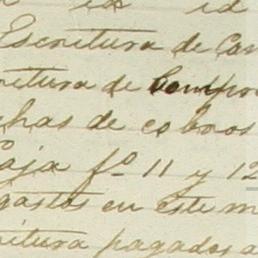 id id
Escritura de Com
ritura de Compr
chas de cobros
Caja fº 11 y 12
gastos en este m
ritura pagados a